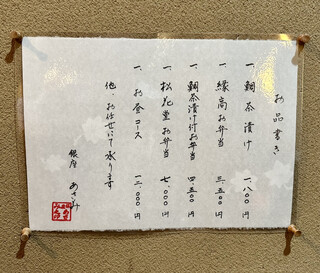 お品書き
一、鯛茶漬け 一、八〇〇円
一、縁高お弁当 三、五〇〇円
一、鯛茶漬け付お弁当 四、五〇〇円
一、松花堂お弁当 七、〇〇〇円
一、お昼コース 一二、〇〇〇円
他、お任せにて承ります
銀座 あさみ